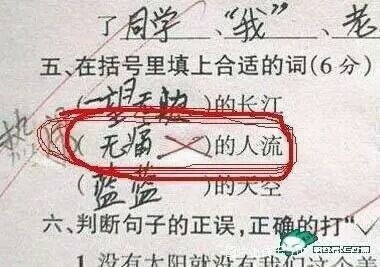 了同学、“我”、老
五、在括号里填上合适的词(6分)
(一望无际)的长江
(无痛)的人流
(蓝蓝)的天空
六、判断句子的正误,正确的打“√
1.没有太阳就没有我们这个美